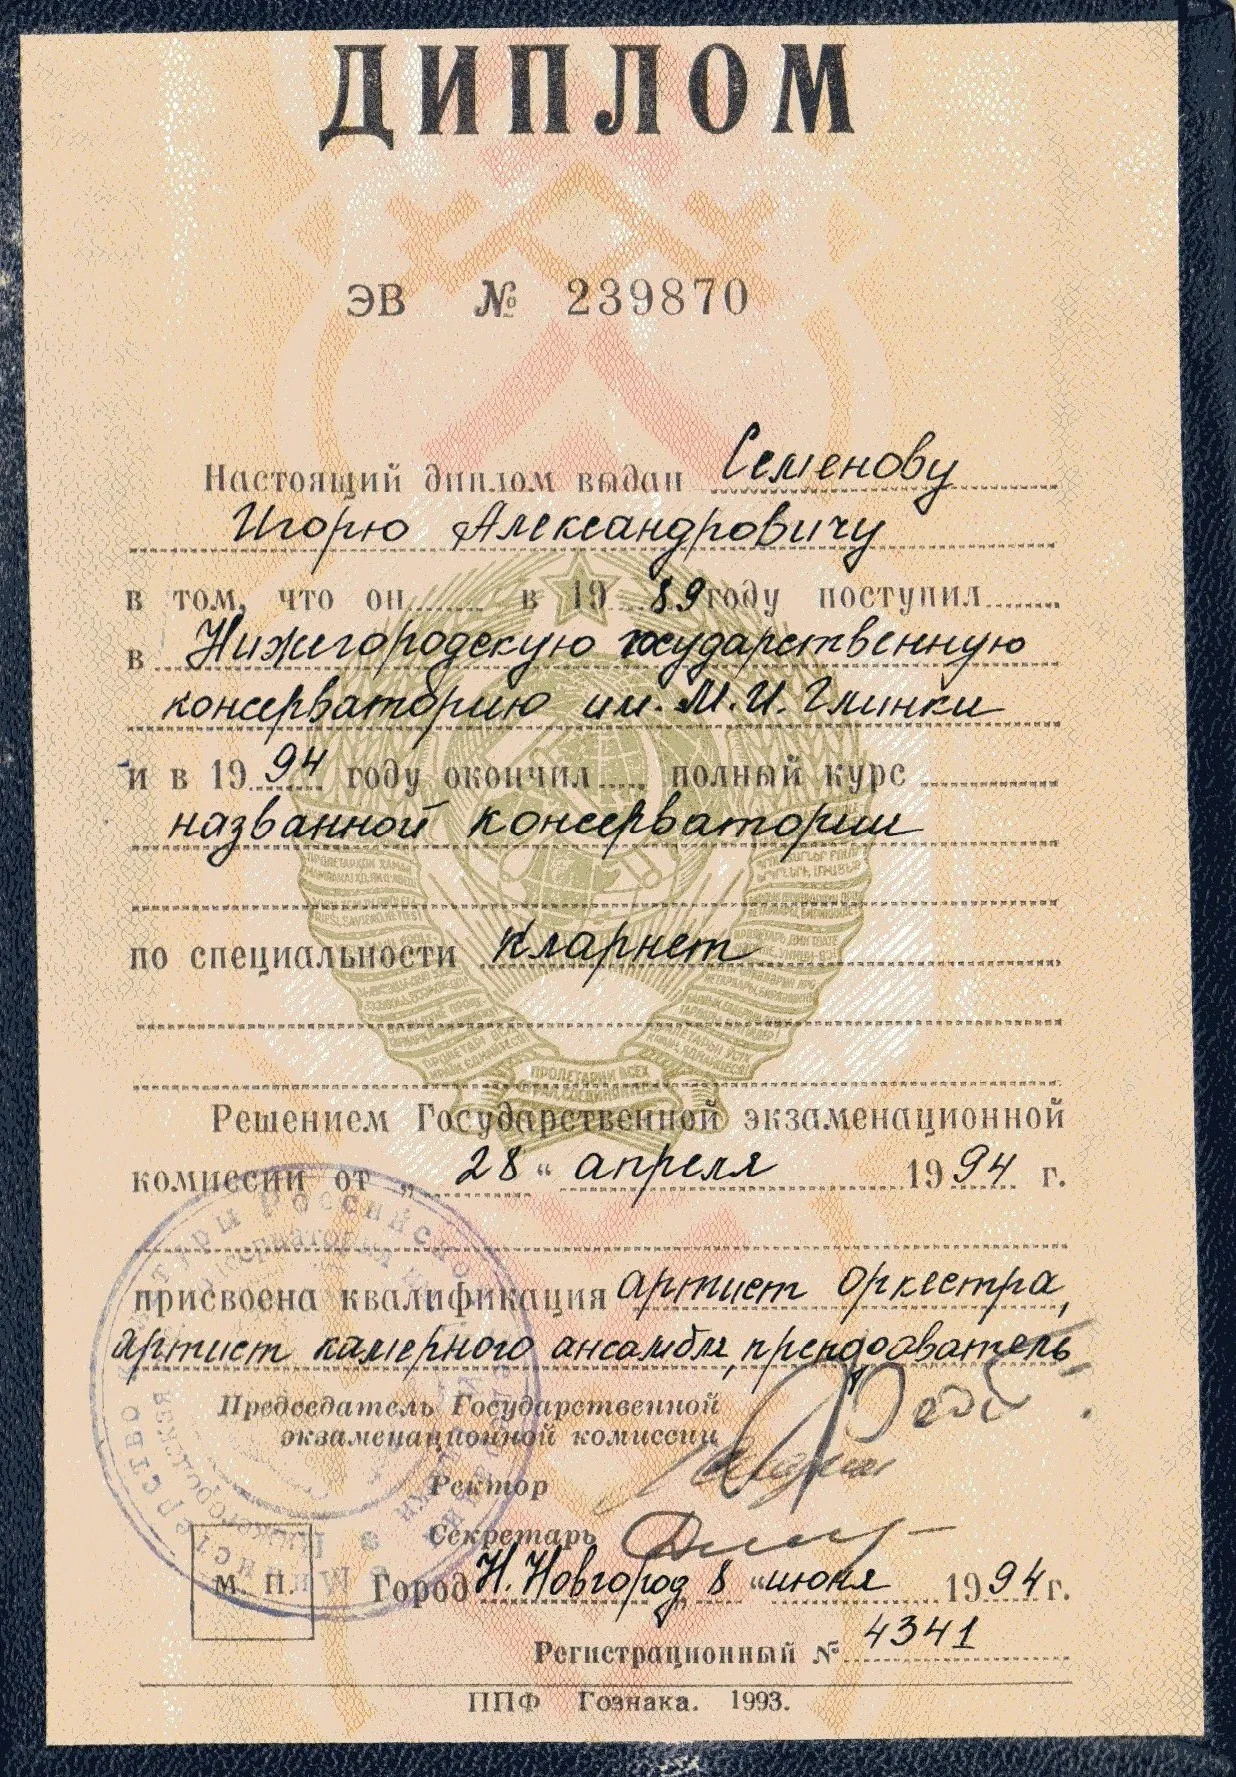 ДИПЛОМ
ЭВ № 239870
Настоящий диплом выдан Семенову
Игорю Александровичу
в том, что он в 1989 году поступил
в Нижегородскую государственную
консерваторию им. М.И. Глинки
и в 1994 году окончил полный курс
названной консерватории
по специальности кларнет
Решением Государственной экзаменационной
комиссии от „28“ апреля 1994 г.
присвоена квалификация артист оркестра,
артист камерного ансамбля, преподаватель
Председатель Государственной
экзаменационной комиссии
Ректор
Секретарь
М. П. Город Н.Новгород „8“ июня 1994 г.
Регистрационный № 4341
ППФ Гознака. 1993.